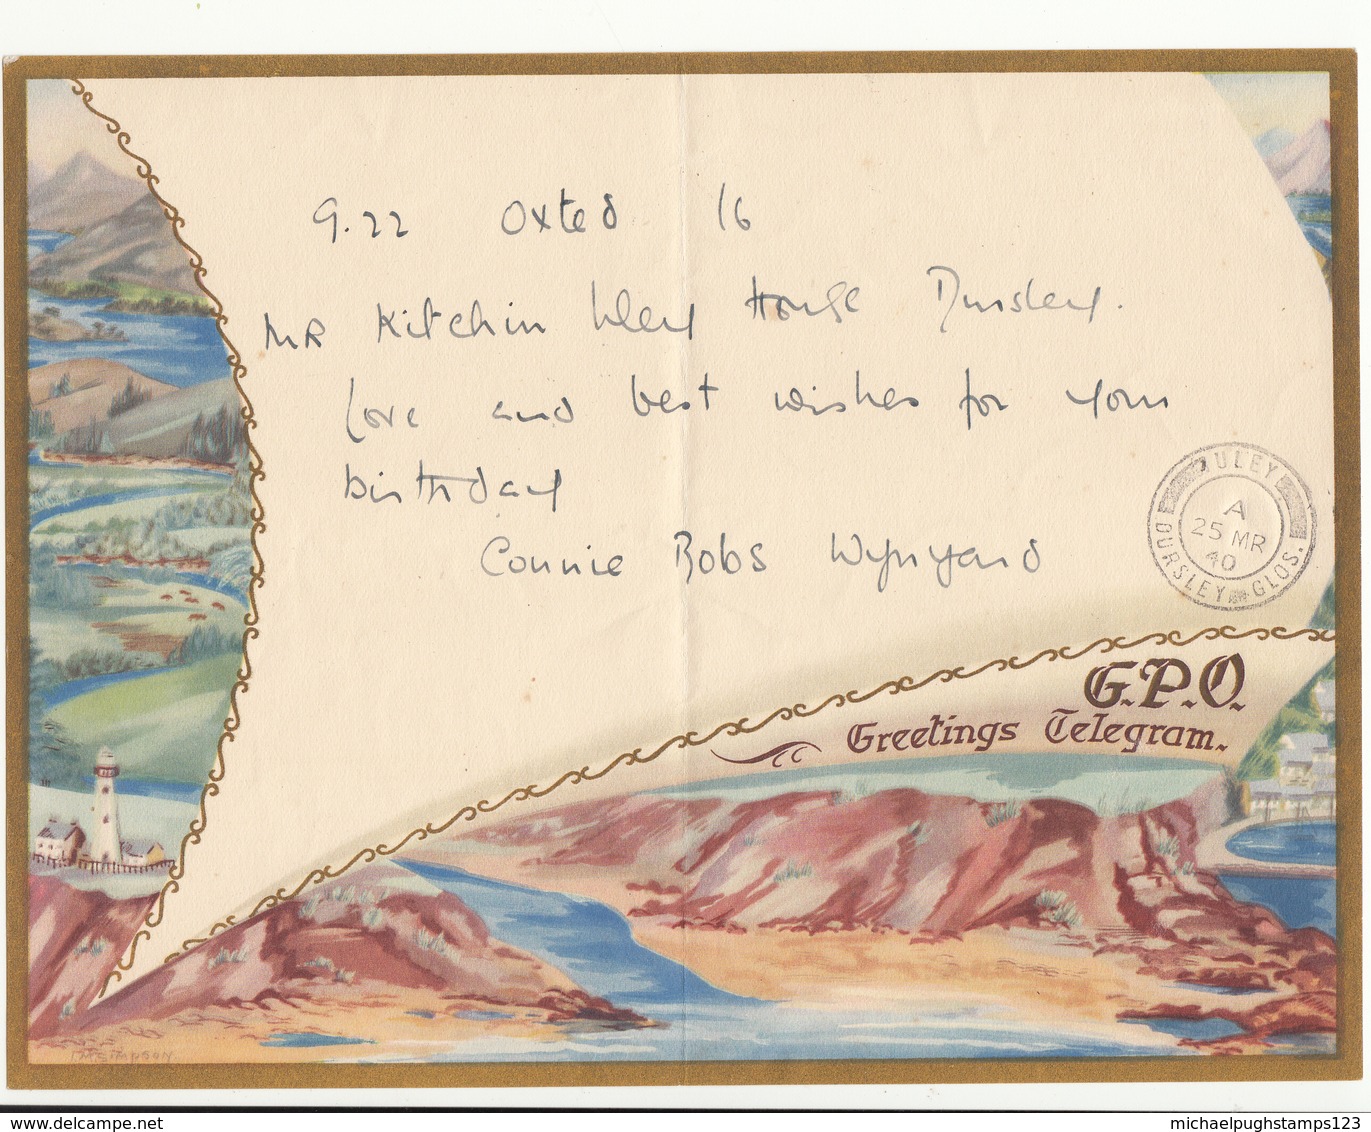 9.22 Oxted 16
MR Kitchin Uley House Dursley.
love and best wishes for your
birthday
Connie Bobs Wynyard
ULEY
A
25 MR
40
DURSLEY GLOS.
G.P.O.
Greetings Telegram.
I.M. SIMPSON
michaelpughstamps123